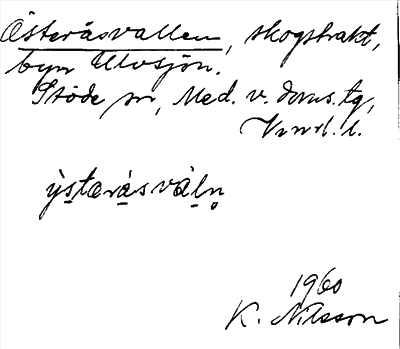 Österåsvallen, skogstrakt,
byn Ulvsjön.
Stöde sn, Med. v. doms. tg,
Vnrl. l.
ỳstæråsvàln̥
1960
K. Nilsson